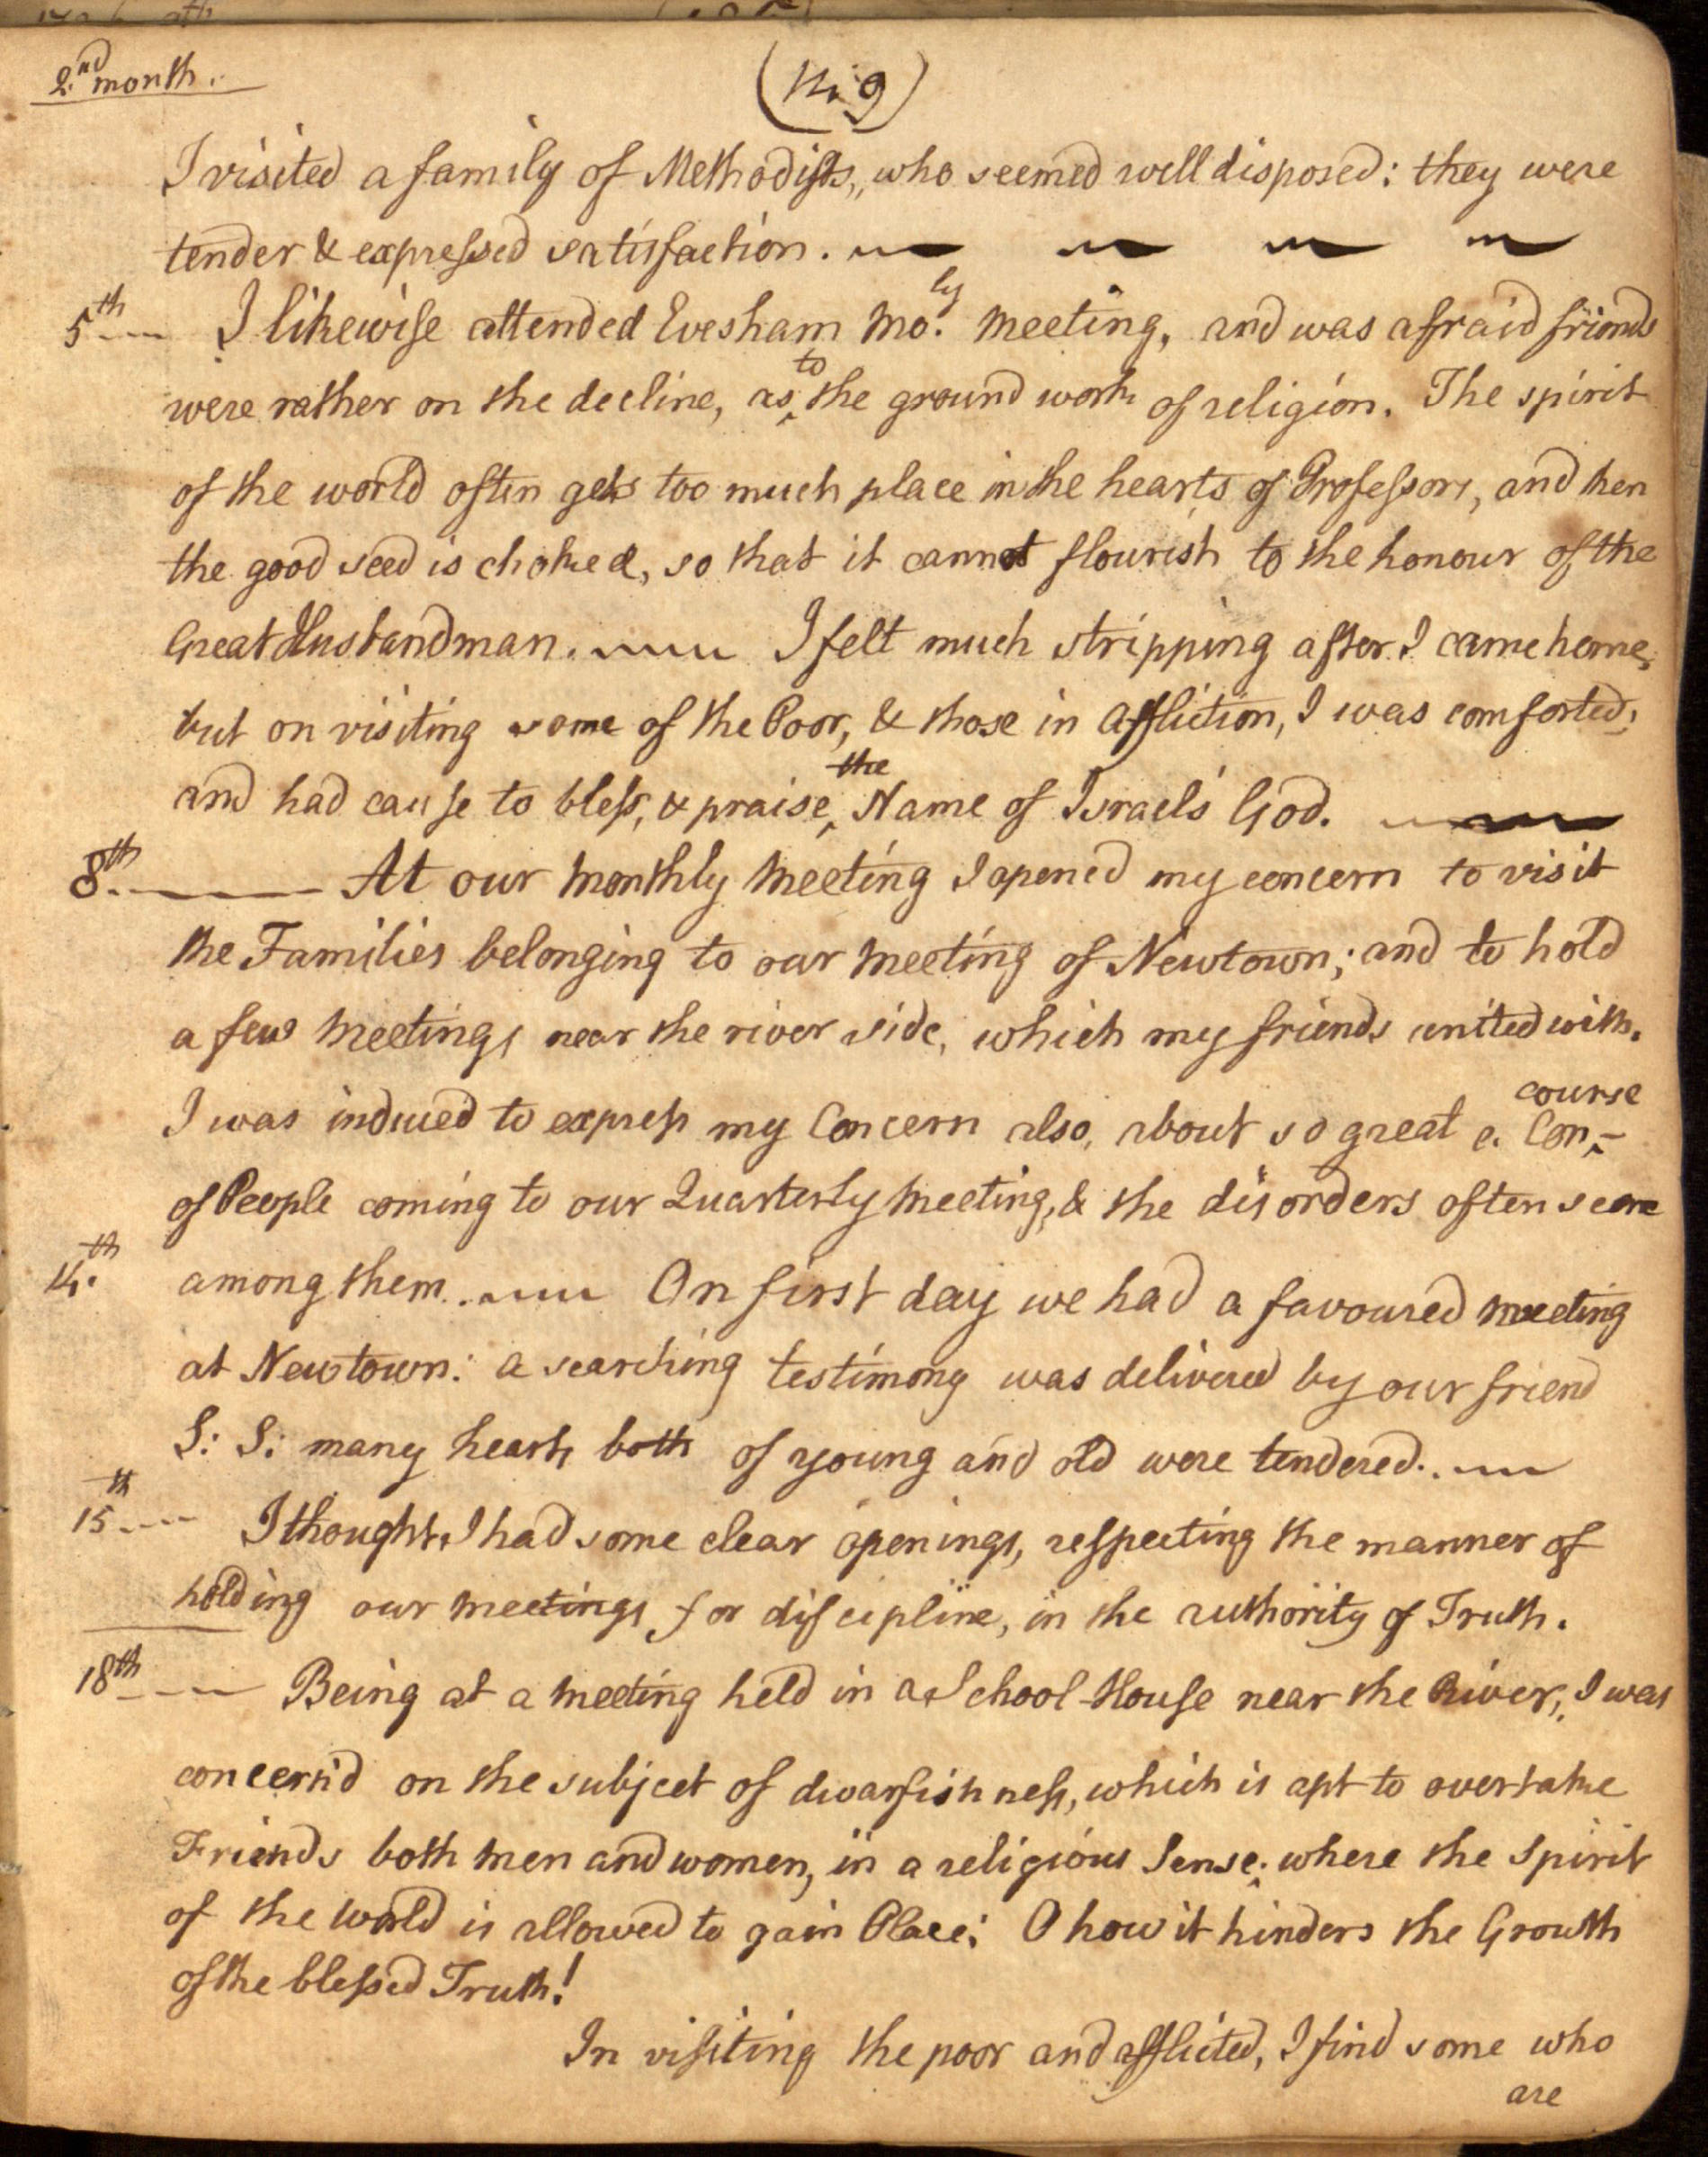 2.nd month.
I visited a family of Methodists, who seemed well disposed: they were
tender & expressed satisfaction.
5th I likewise attended Evesham Mo.ly Meeting, and was afraid friends
were rather on the decline, as to the ground work of religion. The spirit
of the world often gets too much place in the hearts of Professors, and then
the good seed is choked, so that it cannot flourish to the honour of the
Great Husbandman. I felt much stripping after I came home,
but on visiting some of the Poor, & those in affliction, I was comforted,
and had cause to bless, & praise the Name of Israel's God.
8th. At our Monthly Meeting I opened my concern to visit
the Families belonging to our Meeting of Newtown; and to hold
a few Meetings near the river side, which my friends united with.
I was induced to express my Concern also, about so great a Concourse
of People coming to our Quarterly Meeting, & the disorders often seene
14.th among them. On first day we had a favoured Meeting
at Newtown: a searching testimony was delivered by our friend
S: S: many hearts both of young and old were tendered.
15th I thought I had some clear openings, respecting the manner of
holding our Meetings for discipline, in the authority of Truth.
18th Being at a Meeting held in a School House near the River, I was
concern'd on the subject of dwarfishness, which is apt to overtake
Friends both Men and women, in a religious Sense, where the Spirit
of the World is allowed to gain Place; O how it hinders the Growth
of the blessed Truth!
In visiting the poor and afflicted, I find some who
are